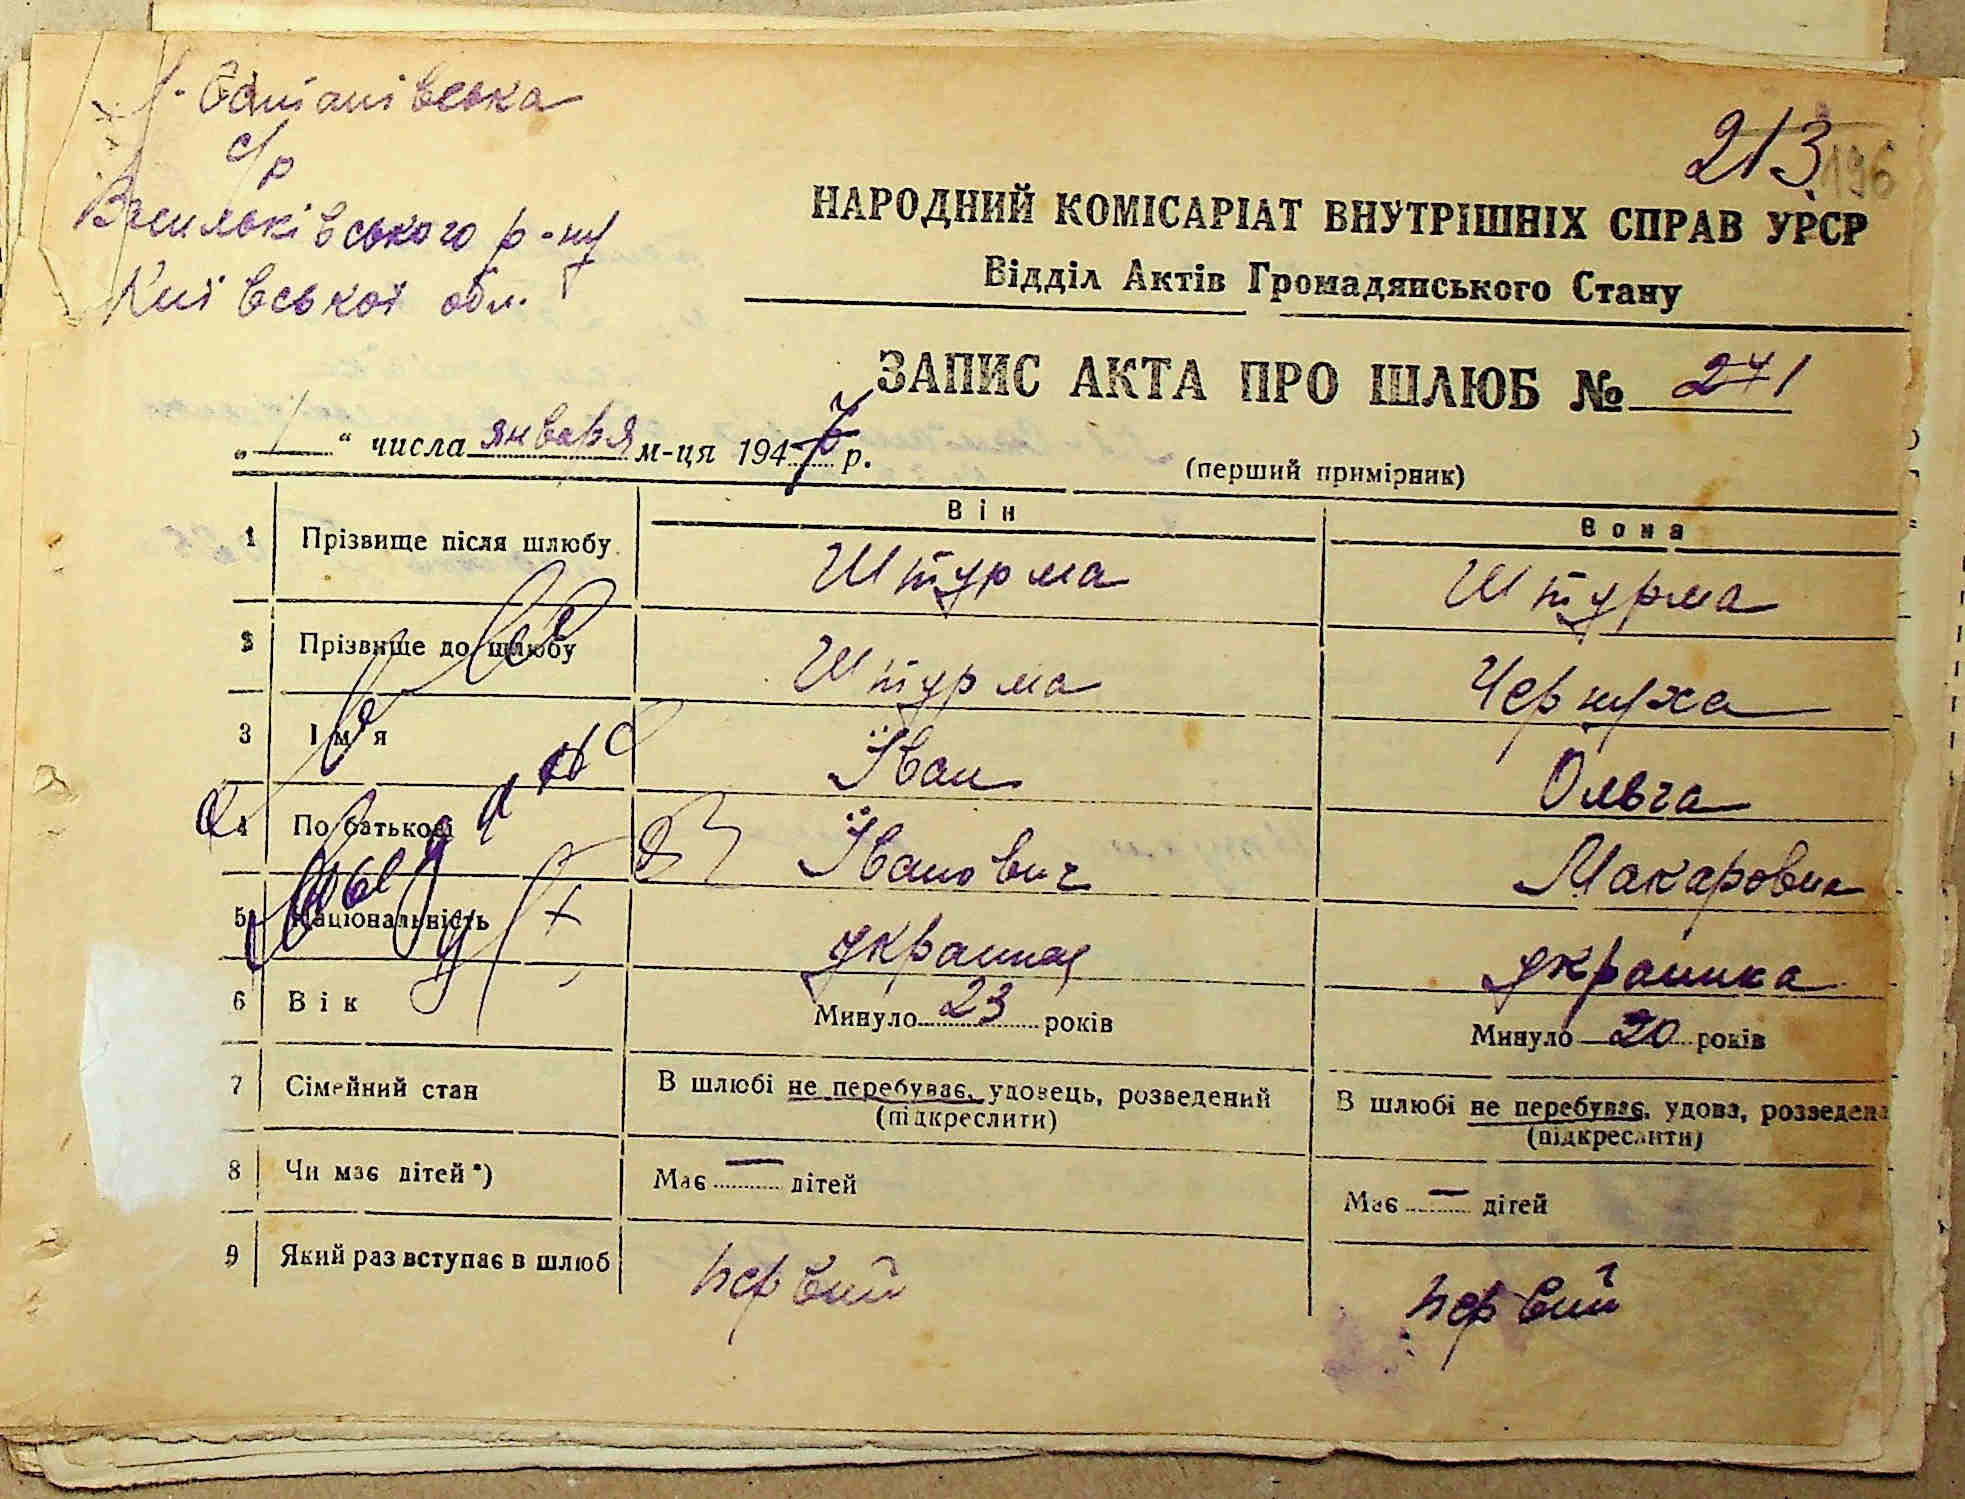 с/р
Васильківського р-ну
Київської обл.
213
196
НАРОДНИЙ КОМІСАРІАТ ВНУТРІШНІХ СПРАВ УРСР
Відділ Актів Громадянського Стану
ЗАПИС АКТА ПРО ШЛЮБ № 271
„ 1 “ числа января м-ця 1947 р.
(перший примірник)
Він Вона
1 Прізвище після шлюбу Штурма Штурма
2 Прізвище до шлюбу Штурма Чернуха
3 Ім'я Іван Ольга
4 По батькові Іванович Макаровна
5 Національність украинец украинка
6 Вік Минуло 23 років Минуло 20 років
7 Сімейний стан В шлюбі не перебуває, удовець, розведений (підкреслити) В шлюбі не перебуває, удова, розведена (підкреслити)
8 Чи має дітей*) Має — дітей Має — дітей
9 Який раз вступає в шлюб первий первий